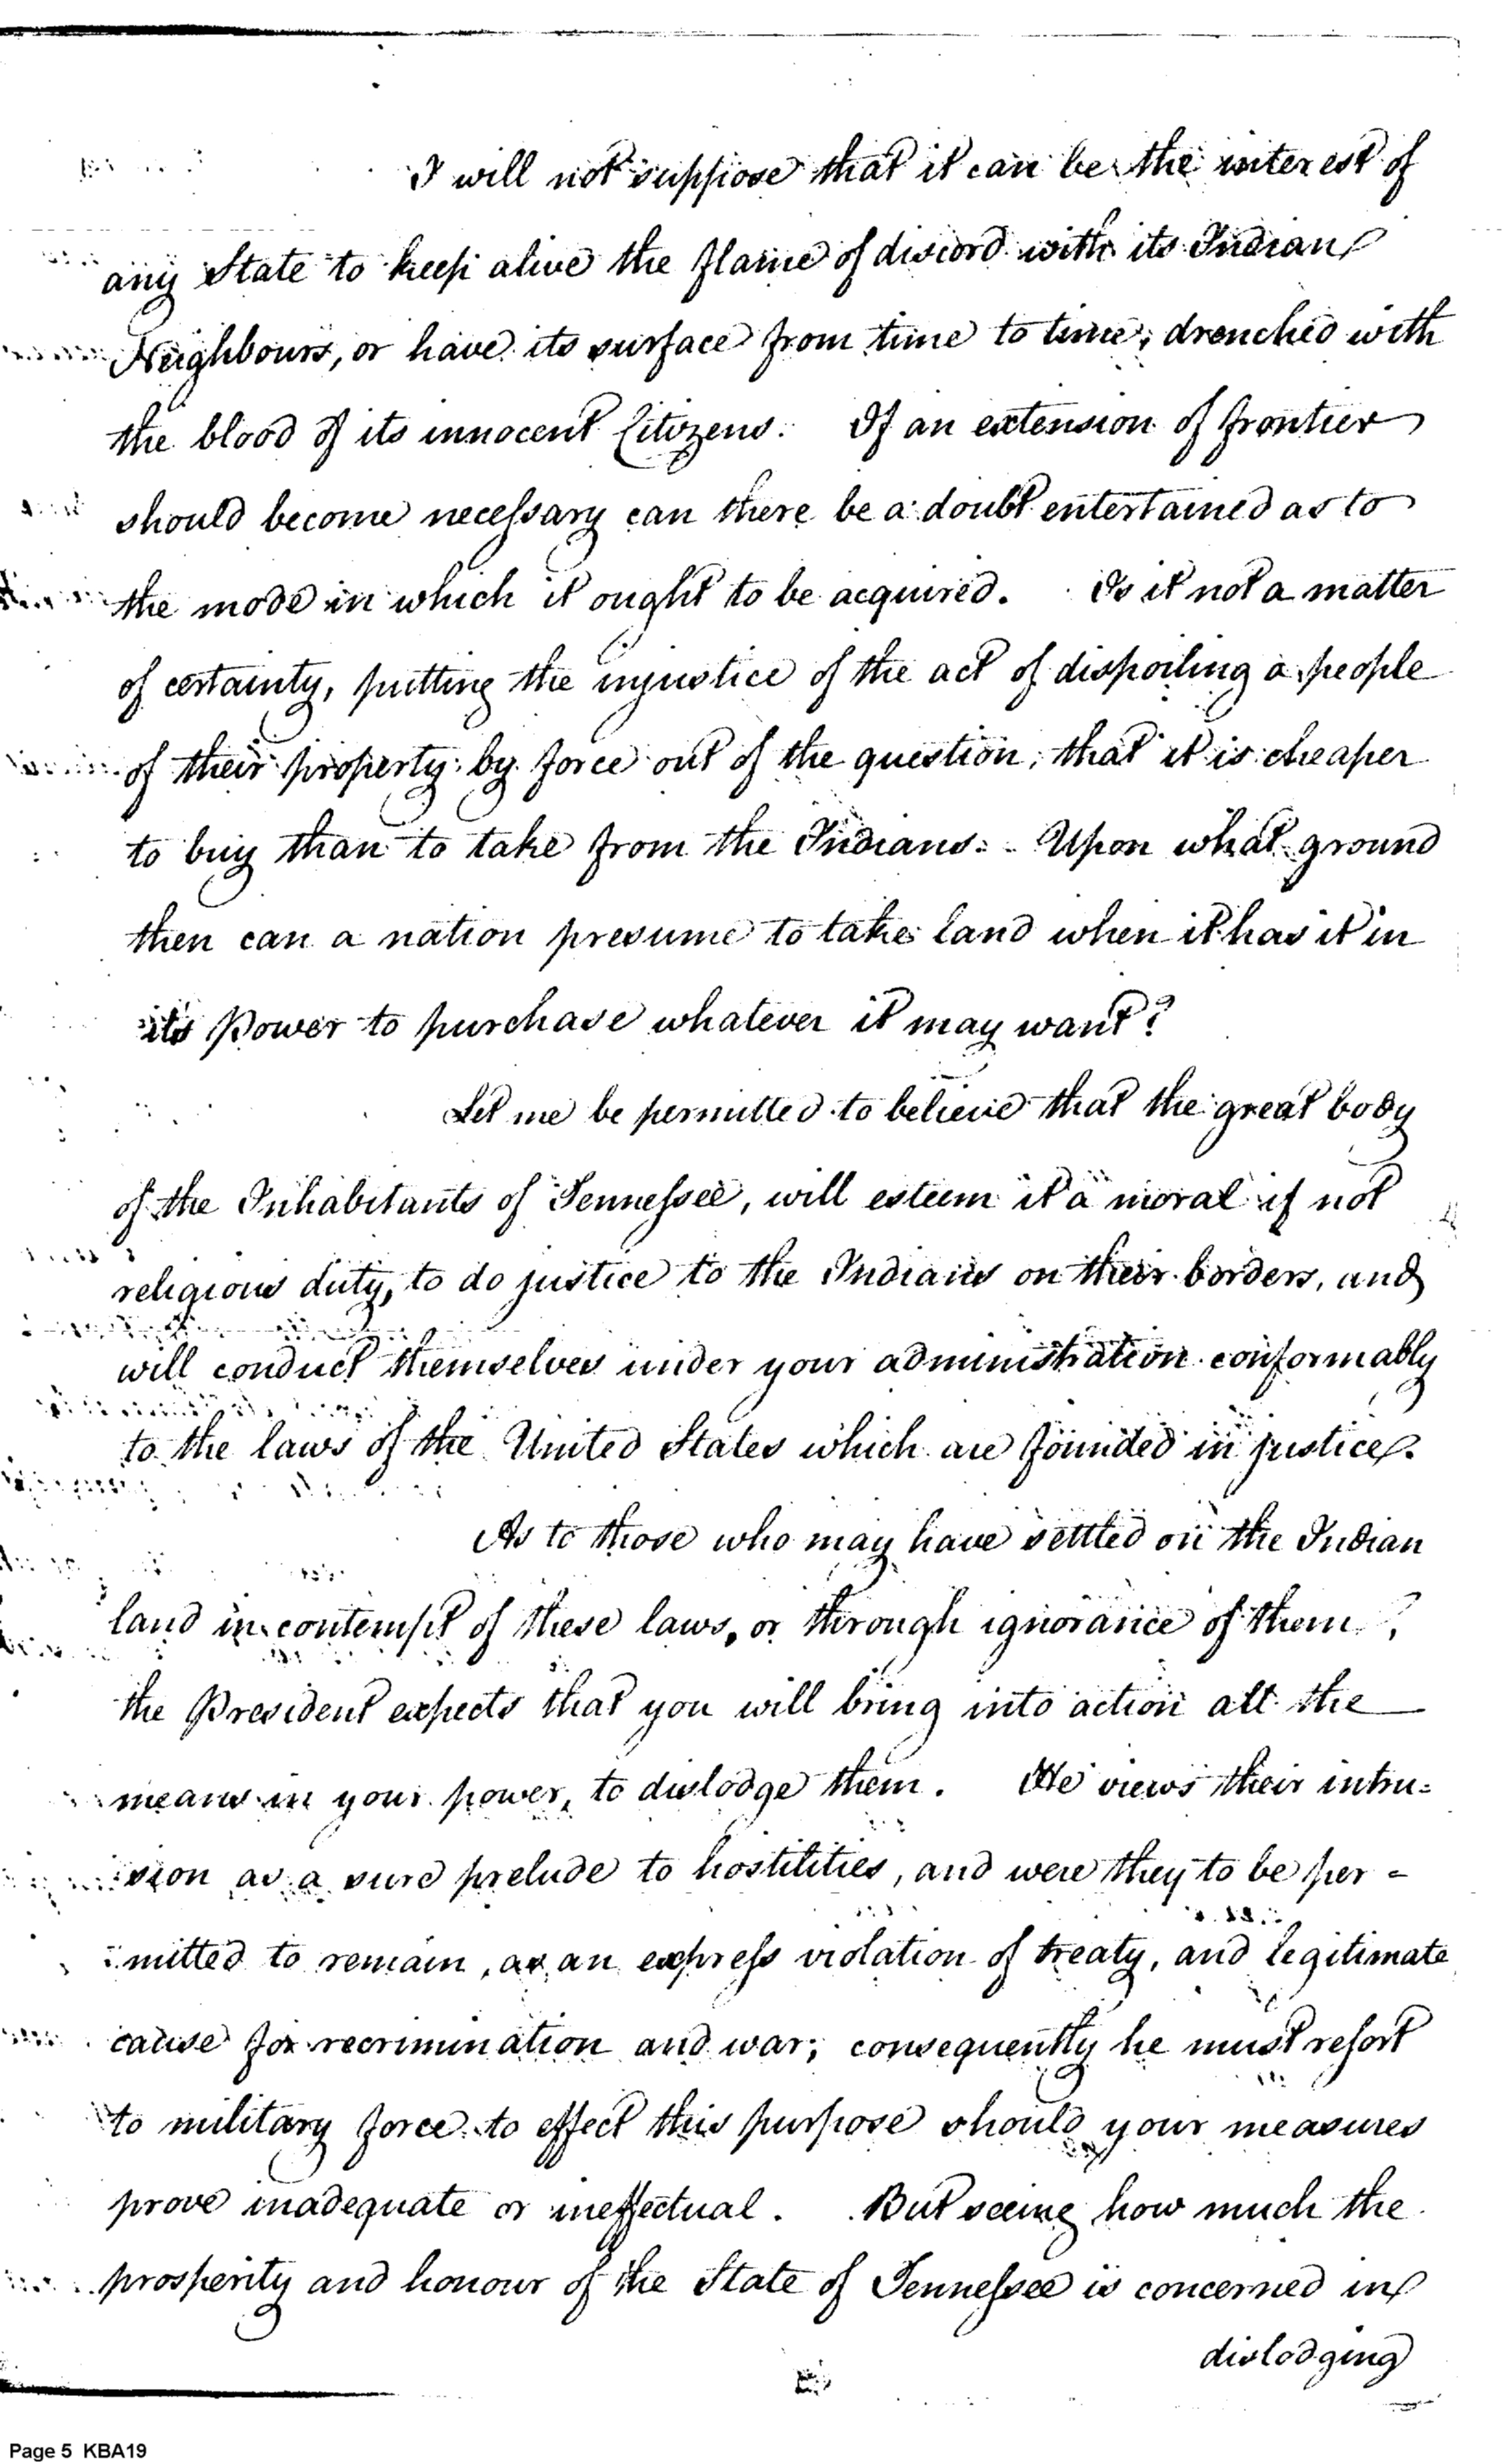 I will not suppose that it can be the interest of
any State to keep alive the flame of discord with its Indian
Neighbours, or have its surface from time to time, drenched with
the blood of its innocent Citizens. If an extension of frontier
should become necessary can there be a doubt entertained as to
the mode in which it ought to be acquired. Is it not a matter
of certainty, putting the injustice of the act of dispoiling a people
of their property by force out of the question, that it is cheaper
to buy than to take from the Indians. Upon what ground
then can a nation presume to take land when it has it in
its Power to purchase whatever it may want?
Let me be permitted to believe that the great body
of the Inhabitants of Tennessee, will esteem it a moral if not
religious duty, to do justice to the Indians on their borders, and
will conduct themselves under your administration conformably
to the laws of the United States which are founded in justice.
As to those who may have settled on the Indian
land in contempt of these laws, or through ignorance of them,
the President expects that you will bring into action all the
means in your power, to dislodge them. He views their intru=
sion as a sure prelude to hostilities, and were they to be per=
mitted to remain, as an express violation of treaty, and legitimate
cause for recrimination and war; consequently he must resort
to military force to effect this purpose should your measures
prove inadequate or ineffectual. But seeing how much the
prosperity and honour of the State of Tennessee is concerned in
dislodging
Page 5 KBA19